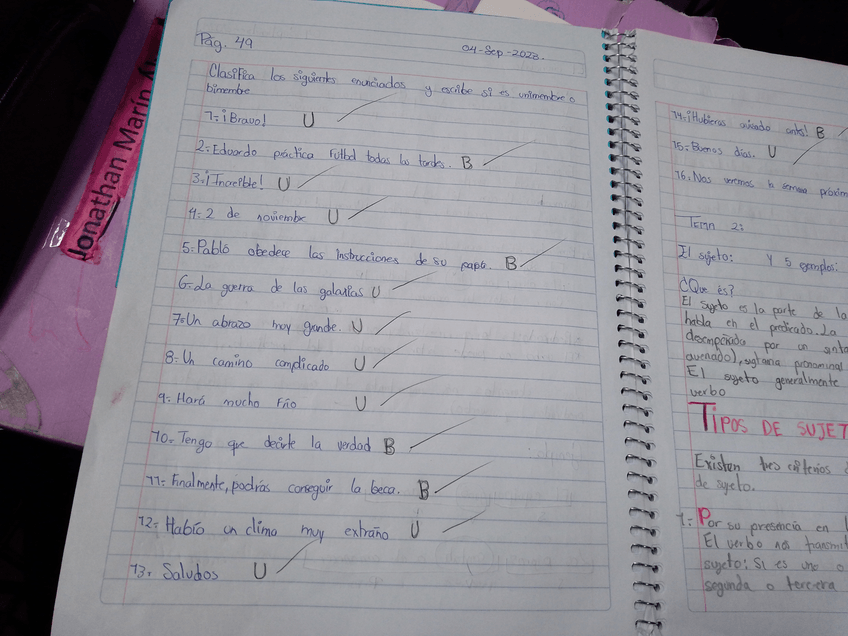 Jonathan Marín
Pág. 49
04-Sep-2023.
Clasifica los siguientes enunciados y escribe si es unimembre o
bimembre
1=¡Bravo! U
2=Eduardo práctica Futbol todas las tardes. B
3=¡Increíble! U
4=2 de noviembre U
5=Pabló obedece las Instrucciones de su papá. B
6=La guerra de las galaxias U
7=Un abrazo muy grande. U
8=Un camino complicado U
9=Hará mucho Frio U
10=Tengo que decirte la verdad B
11=Finalmente, podrás conseguir la beca. B
12=Había un clima muy extraño U
13= Saludos U
14=¡Hubieras avisado antes! B
15=Buenos días. U
16=Nos veremos la semana próxim
Tema 2:
El sujeto: Y 5 ejemplos:
¿Que es?
El sujeto es la parte de la
habla en el predicado. La
desempeñado por un sinta
pronominal
El sujeto generalmente
verbo
TIPOS DE SUJET
Existen tres criterios
de sujeto.
1= Por su presencia en l
El verbo nos transmit
sujeto: Si es uno o
segunda o tercera